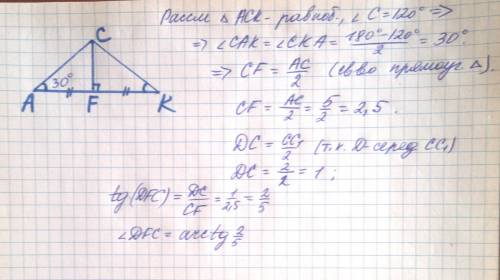 Рассм △ ACK - равноб., ∠C = 120° ⇒
⇒ ∠CAK = ∠CKA = (180° - 120°)/2 = 30°.
⇒ CF = AC/2 (св-во прямоуг. △).
CF = AC/2 = 5/2 = 2,5.
DC = CC₁/2 (т.к. D - серед CC₁)
DC = 2/2 = 1;
tg(DFC) = DC/CF = 1/2,5 = 2/5
∠DFC = arctg 2/5
C
30°
A F K